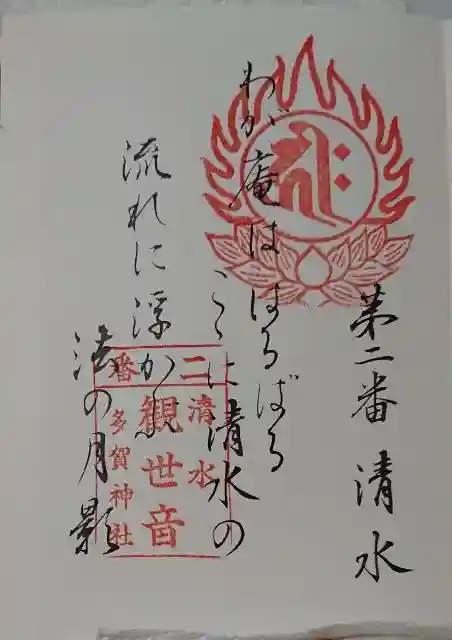 第二番 清水
わが庵は はるばる
こゝに清水の
流れに浮かぶ
法の月影
二番
清水
観世音
多賀神社